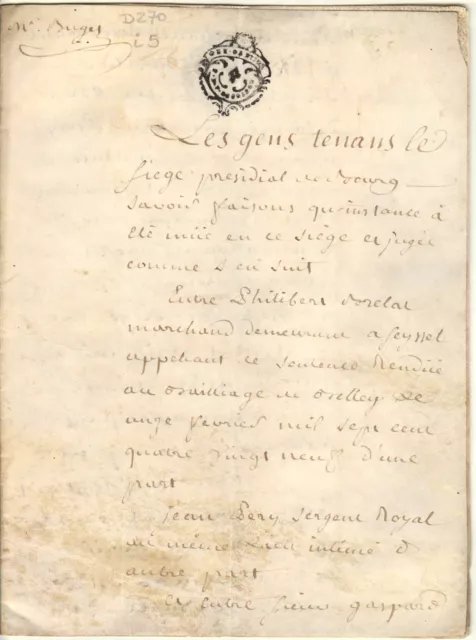 D270
25
Les gens tenans le
siege presidial de Bourg
savoir faisons qu'instance à
été müe en ce siége et jugée
comme s'en suit
Entre Philibert
marchand demeurant a Seyssel
appellant de sentence Rendüe
au Bailliage de Belley le
onze fevrier mil sept cent
quatre vingt neuf d'une
part
Jean Pery sergent Royal
au même lieu intimé d
autre part
et entre sieur gaspard